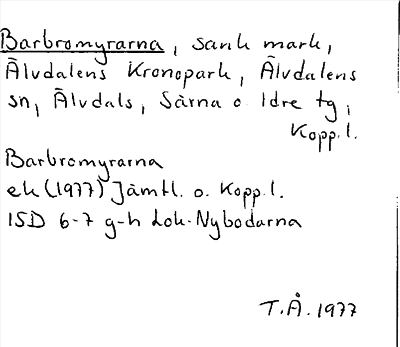 Barbromyrarna, sank mark,
Älvdalens Kronopark, Älvdalens
sn, Älvdals, Särna o. Idre tg,
Kopp.l.
Barbromyrarna
ek (1977) Jämtl. o. Kopp.l.
15D 6-7 g-h Lok. Nybodarna
T.Å. 1977